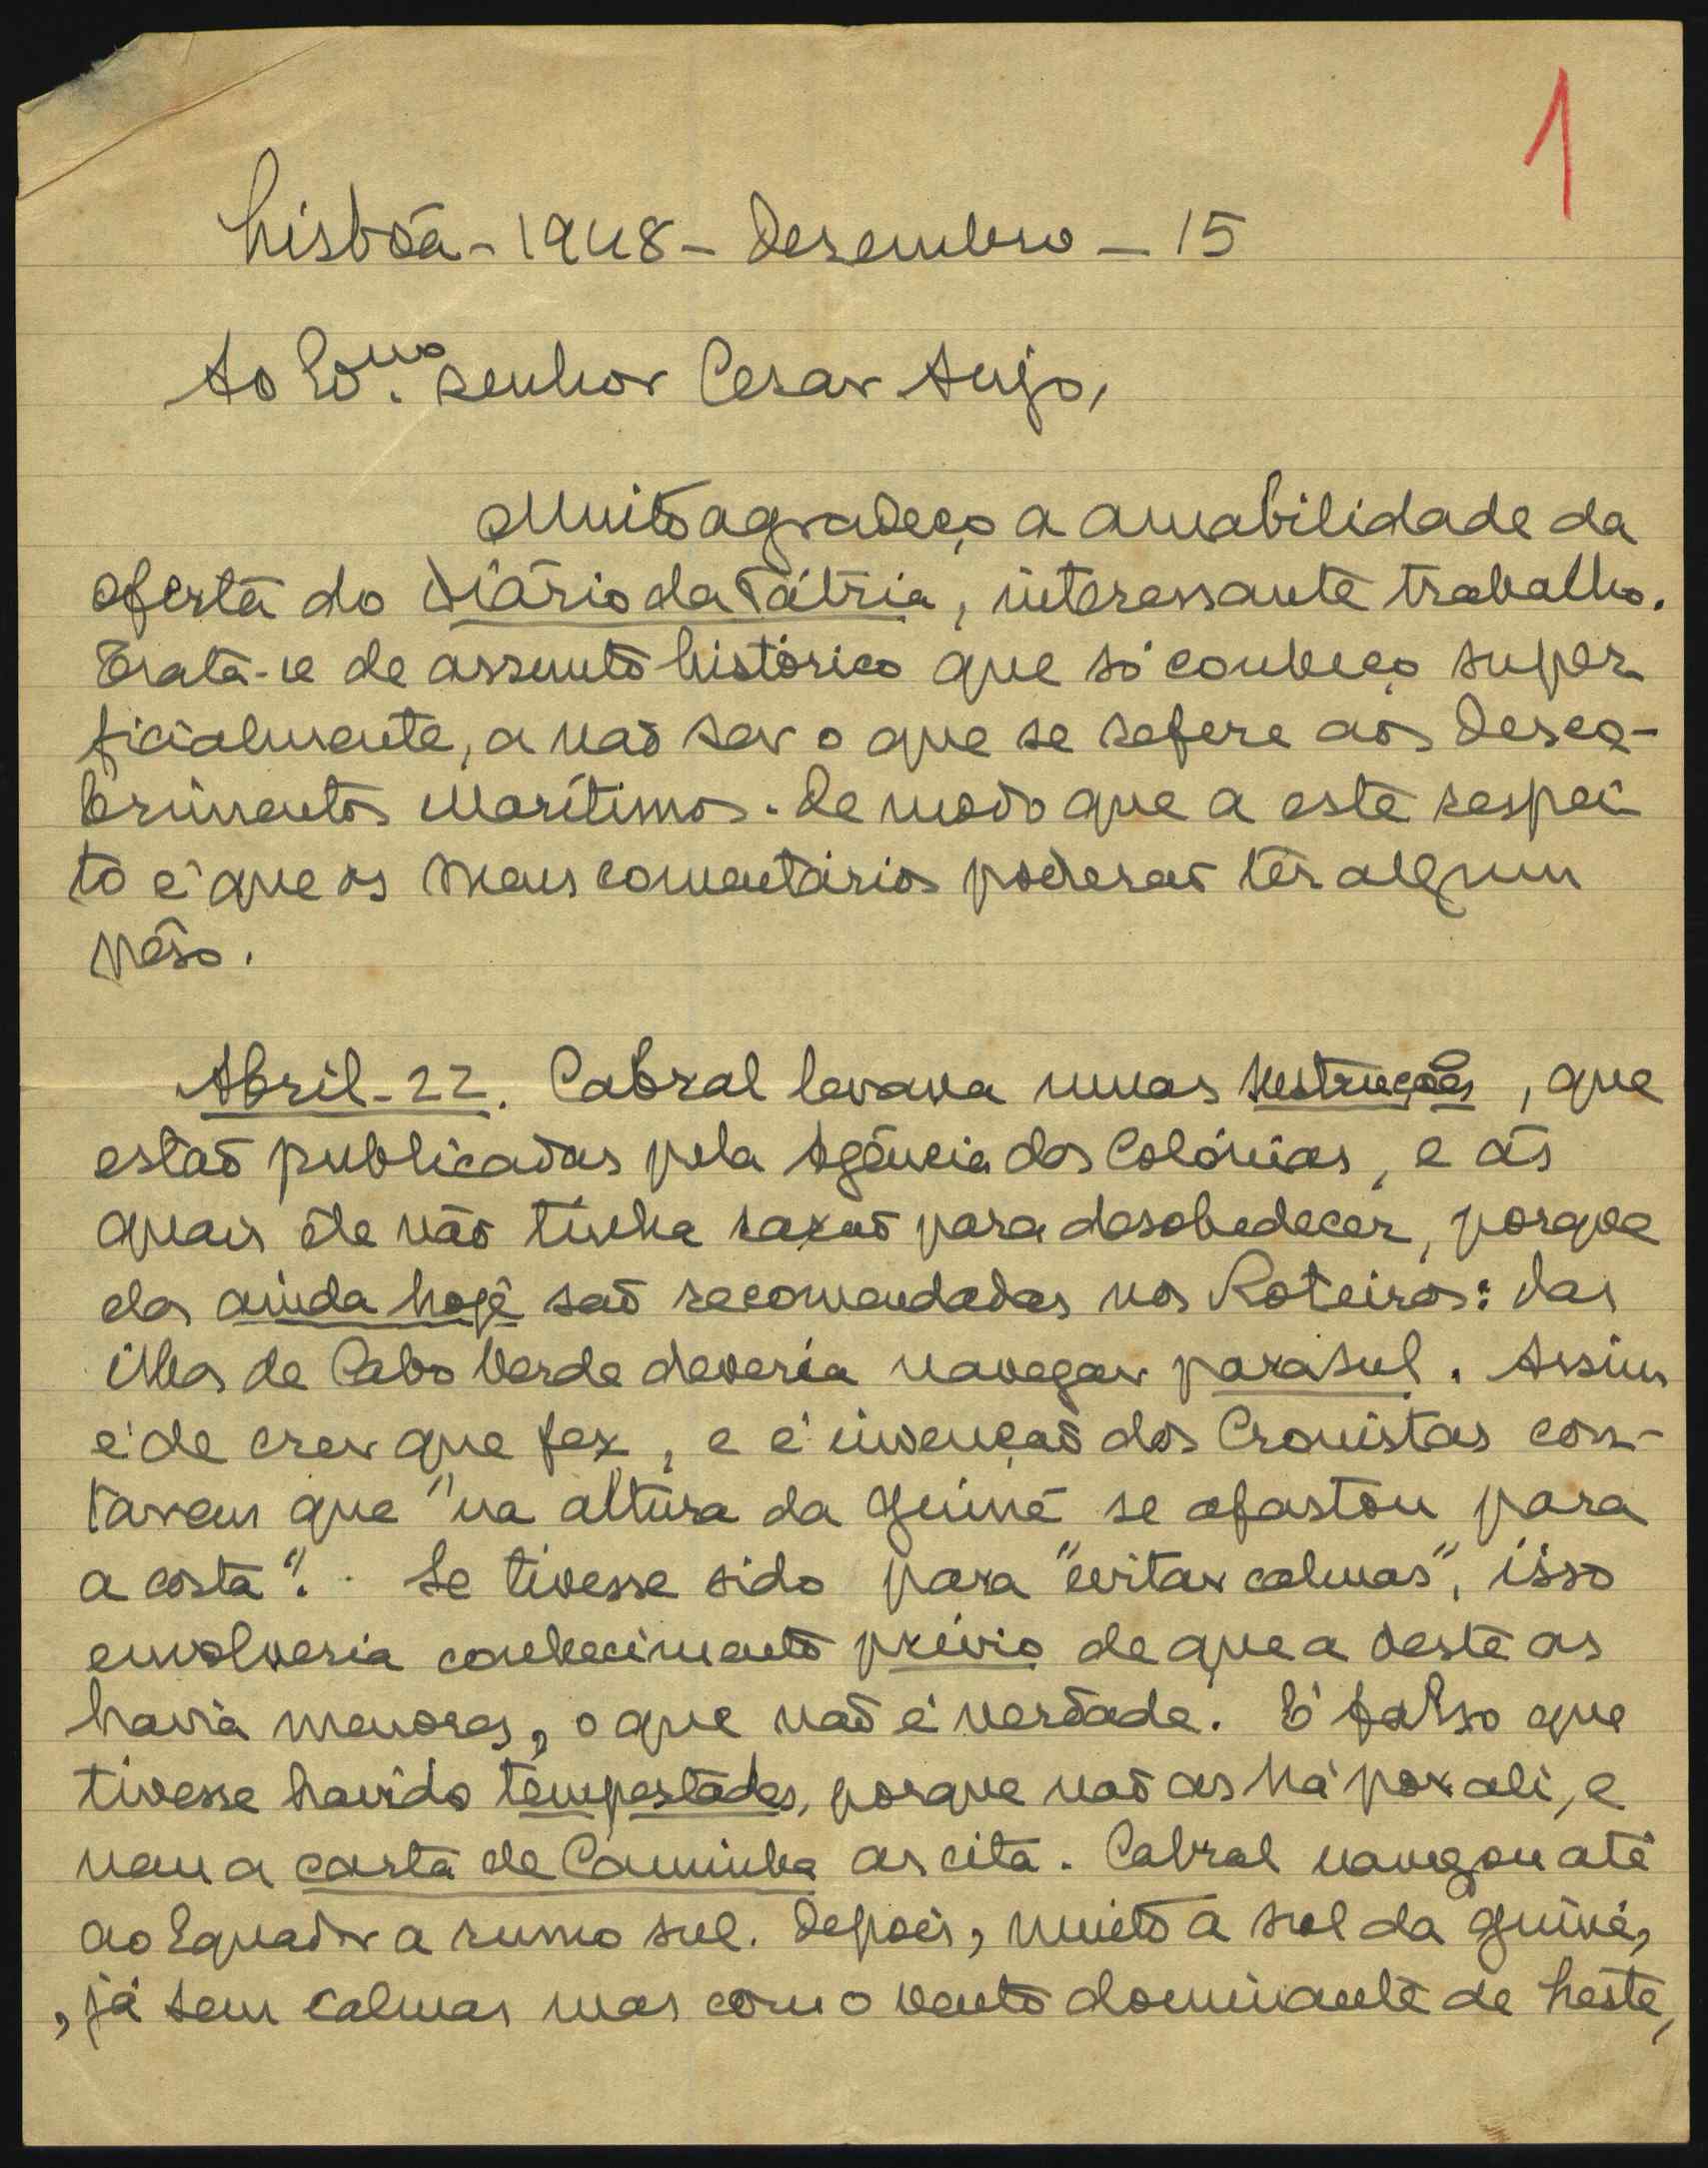 1
Lisbôa - 1948 - Dezembro - 15
Ao Exmo. Senhor Cesar Anjo,
Muito agradeço a amabilidade da
oferta do Diário da Pátria, interessante trabalho.
Trata-se de assunto histórico que só conheço super-
ficialmente, a não ser o que se refere aos Desco-
brimentos Marítimos. De modo que a este respei-
to é que os meus comentários poderão ter algum
pêso.
Abril - 22. Cabral levava umas Instruções, que
estão publicadas pela Agência das Colónias, e às
quais êle não tinha razão para desobedecer, porque
elas ainda hoje são recomendadas nos Roteiros: das
ilhas de Cabo Verde deveria navegar para sul. Assim
é de crer que fez, e é invenção dos Cronistas con-
tarem que "na altura da Guiné se afastou para
a costa". Se tivesse sido para "evitar calmas", isso
envolveria conhecimento prévio de que a oeste as
havia menores, o que não é verdade. É falso que
tivesse havido tempestades, porque não as há por ali, e
nem a carta de Caminha as cita. Cabral navegou até
ao Equador a rumo sul. Depois, muito a sul da Guiné,
, já sem calmas mas com o vento dominante de Leste,